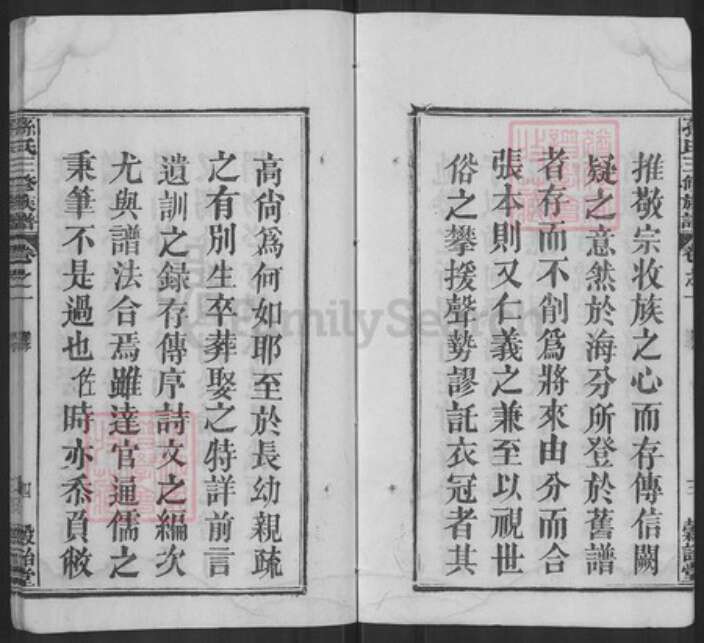 推敬宗收族之心而存傳信闕
疑之意然於海分所登於舊譜
者存而不削爲將來由分而合
張本則又仁義之兼至以視世
俗之攀援聲勢謬託衣冠者其
高尙爲何如耶至於長幼親疏
之有別生卒葬娶之特詳前言
遺訓之錄存傳序詩文之編次
尤與譜法合焉雖達官通儒之
秉筆不是過也佐時亦忝頁敝
孫氏三修族譜 卷之一
三
孫氏三修族譜 卷之一
四
詒堂
FamilySearch